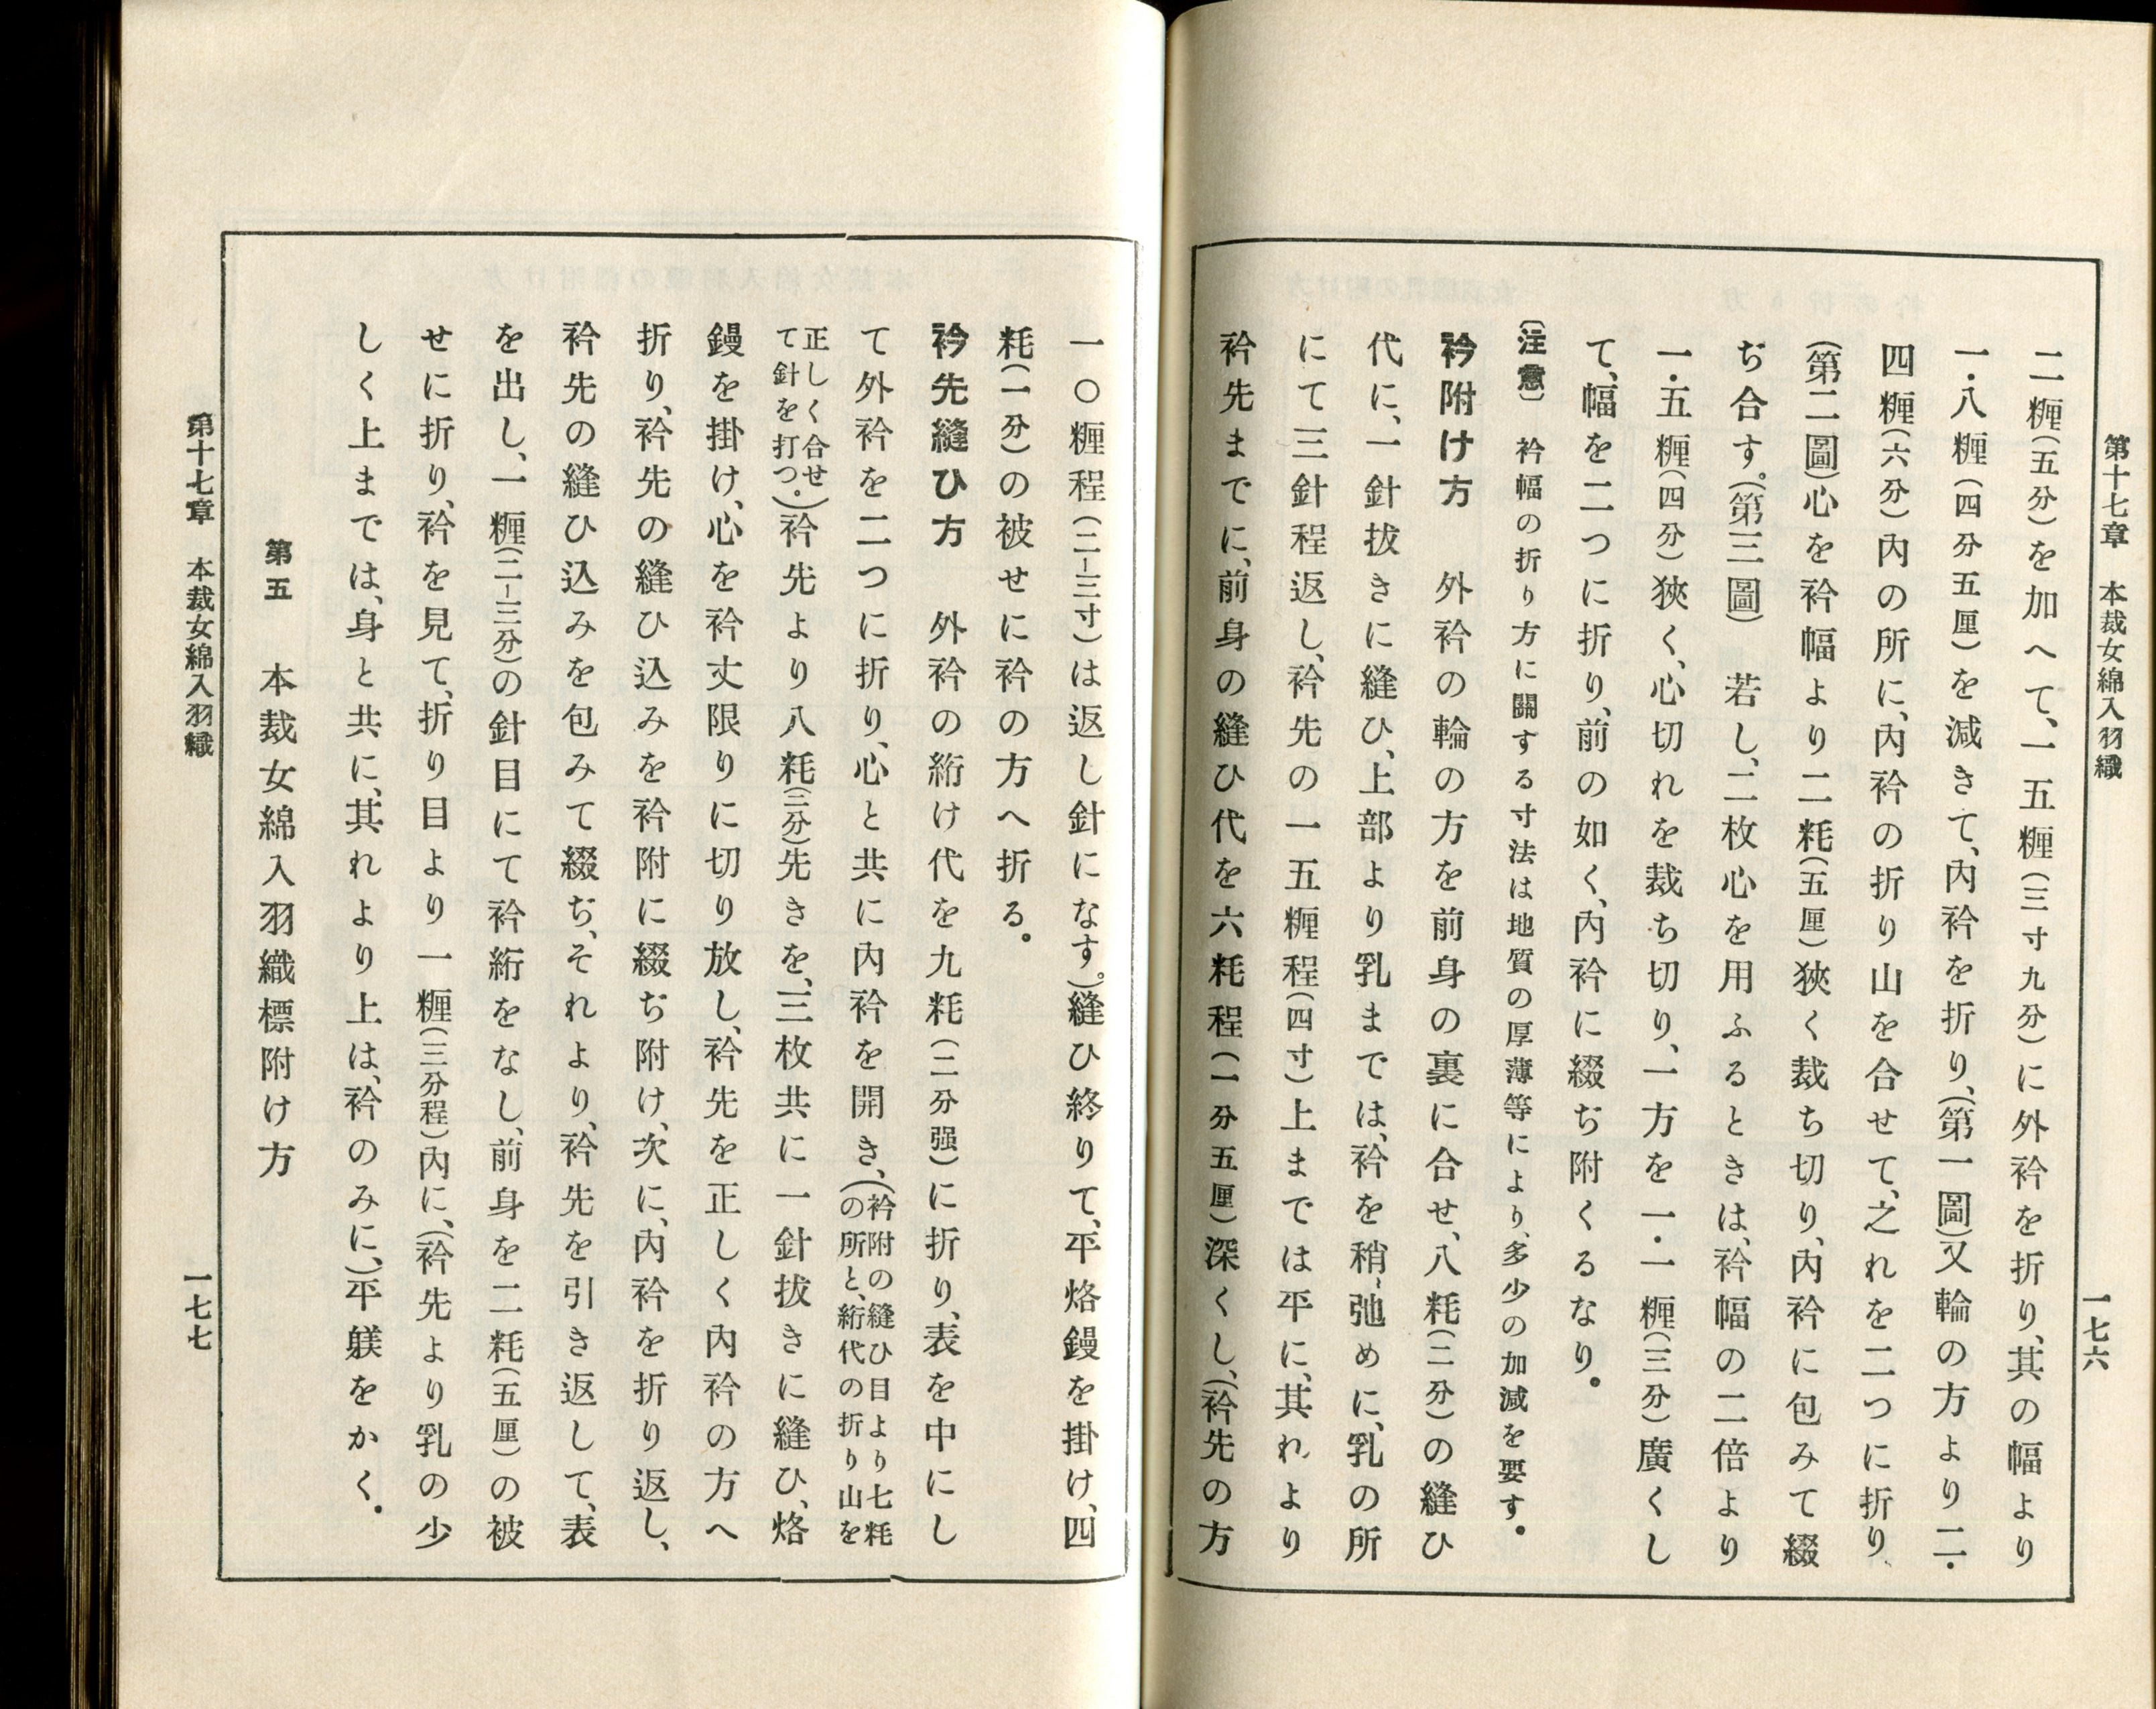 第十七章　本裁女綿入羽織
一七六
二糎(五分)を加へて、一五糎(三寸九分)に外衿を折り、其の幅より
一・八糎(四分五厘)を減きて、内衿を折り、(第一圖)又輪の方より二・
四糎(六分)内の所に、内衿の折り山を合せて、之れを二つに折り、
(第二圖)心を衿幅より二粍(五厘)狹く裁ち切り、内衿に包みて綴
ぢ合す。(第三圖)　若し、二枚心を用ふるときは、衿幅の二倍より
一・五糎(四分)狹く、心切れを裁ち切り、一方を一・一糎(三分)廣くし
て、幅を二つに折り、前の如く、内衿に綴ぢ附くるなり。
〔注意〕　衿幅の折り方に關する寸法は地質の厚薄等により、多少の加減を要す。
衿附け方　外衿の輪の方を前身の裏に合せ、八粍(二分)の縫ひ
代に、一針拔きに縫ひ、上部より乳までは、衿を稍〻弛めに、乳の所
にて三針程返し、衿先の一五糎程(四寸)上までは平に、其れより
衿先までに、前身の縫ひ代を六粍程(一分五厘)深くし、(衿先の方
一〇糎程(二―三寸)は返し針になす。)縫ひ終りて、平烙鏝を掛け、四
粍(一分)の被せに衿の方へ折る。
衿先縫ひ方　外衿の絎け代を九粍(二分强)に折り、表を中にし
て外衿を二つに折り、心と共に内衿を開き、(衿附の縫ひ目より七粍の所と、絎代の折り山を
正しく合せて針を打つ。)衿先より八粍(二分)先きを、三枚共に一針拔きに縫ひ、烙
鏝を掛け、心を衿丈限りに切り放し、衿先を正しく内衿の方へ
折り、衿先の縫ひ込みを衿附に綴ぢ附け、次に、内衿を折り返し、
衿先の縫ひ込みを包みて綴ぢ、それより、衿先を引き返して、表
を出し、一糎(二―三分)の針目にて衿絎をなし、前身を二粍(五厘)の被
せに折り、衿を見て、折り目より一糎(三分程)内に、(衿先より乳の少
しく上までは、身と共に、其れより上は、衿のみに、)平躾をかく。
第五　本裁女綿入羽織標附け方
第十七章　本裁女綿入羽織
一七七